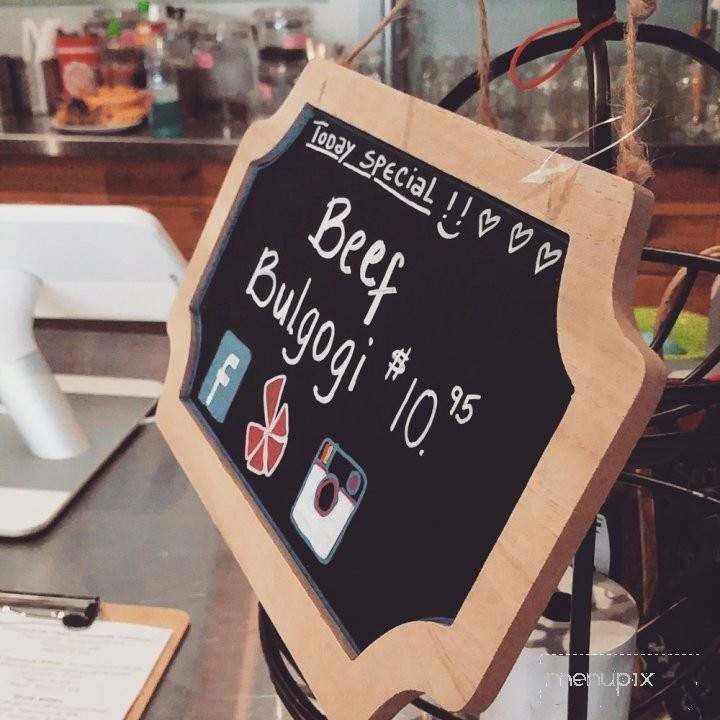 Today SPECiaL !! ♡ ♡ ♡
Beef
Bulgogi $10.95
f
menupix